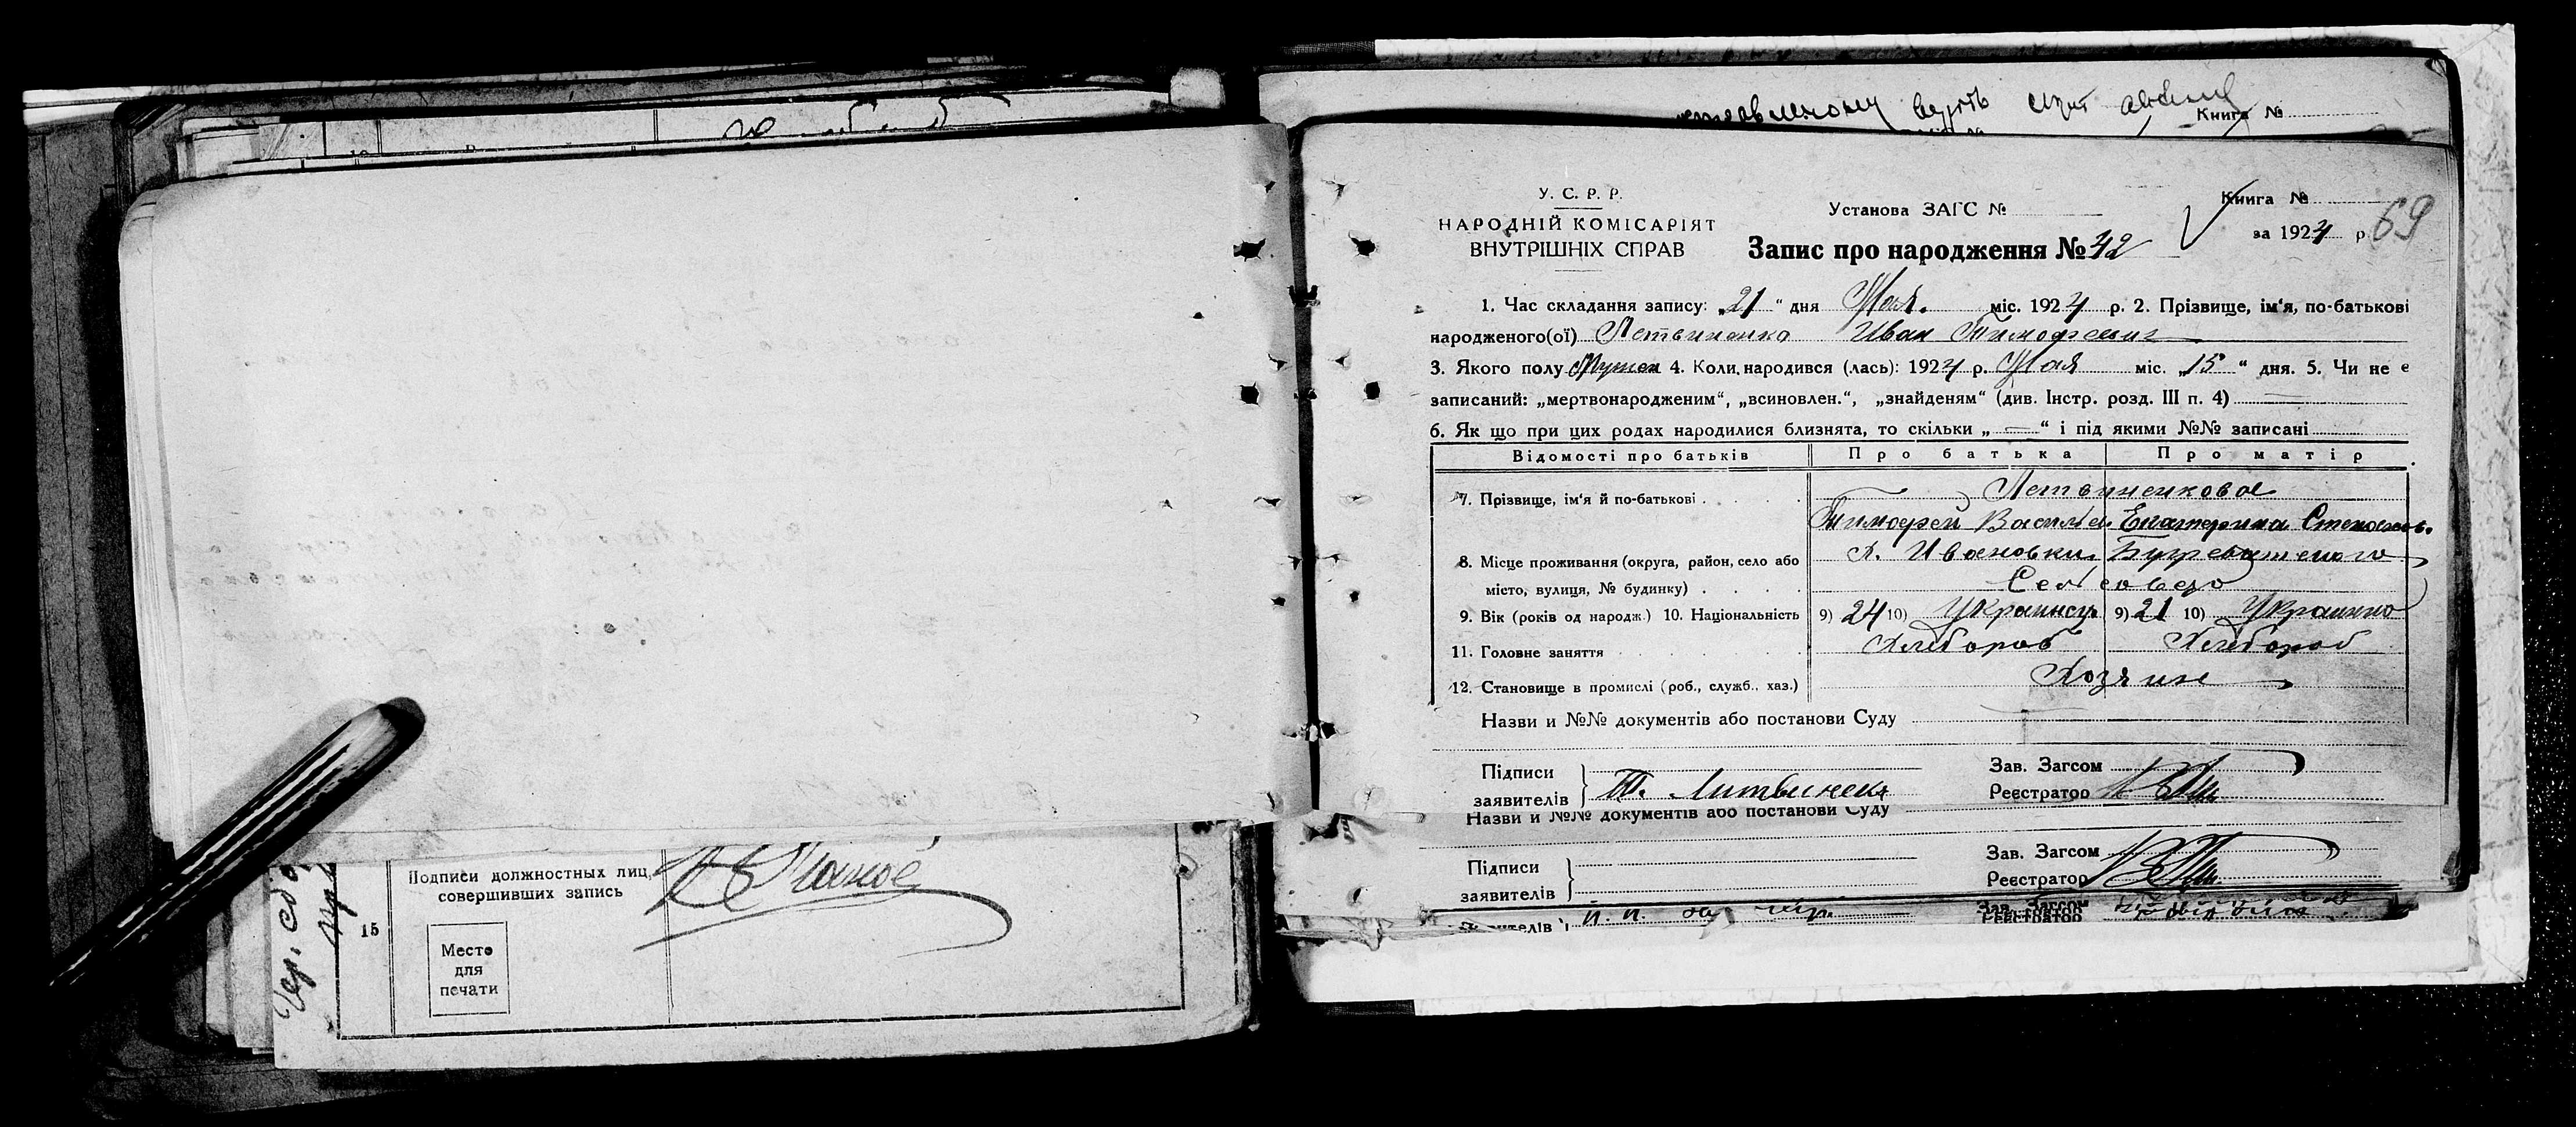 Подписи должностных лиц,
совершивших запись
15
Место
для
печати
Книга №
У. С. Р. Р.
НАРОДНІЙ КОМІСАРІЯТ
ВНУТРІШНІХ СПРАВ
Установа ЗАГС №
Книга №
за 1924 р. 69
Запис про народження № 42
1. Час складання запису: „21“ дня Мая. міс. 1924 р. 2. Прізвище, ім‘я, по-батькові
народженого(ої) Летвиненко Иван Тимофеевич
3. Якого полу Мужск 4. Коли народився (лась): 1924 р. Мая міс. „15“ дня. 5. Чи не є
записаний: „мертвонародженим“, „всиновлен.“, „знайденям“ (див. Інстр. розд. III п. 4) —
6. Як що при цих родах народилися близнята, то скільки „—“ і під якими №№ записані
Відомості про батьків Про батька Про матір
7. Прізвище, ім‘я й по-батькові Летвиненковы
Тимофей Василье. Екатерина Степанов.
8. Місце проживання (округа, район, село або Х. Ивановки
місто, вулиця, № будинку) Сельсовета
9. Вік (років од народж.) 10. Національність 9) 24 10) Украинец 9) 21 10) Украинка
11. Головне заняття Хлебороб Хлебороб
12. Становище в промислі (роб., служб., хаз.) Хозяин
Назви и №№ документів або постанови Суду
Підписи
заявителів Т. Литвинен
Зав. Загсом
Реєстратор
Назви и №№ документів або постанови Суду
Підписи
заявителів
Зав. Загсом
Реєстратор
Зав. Загсом
Реєстратор